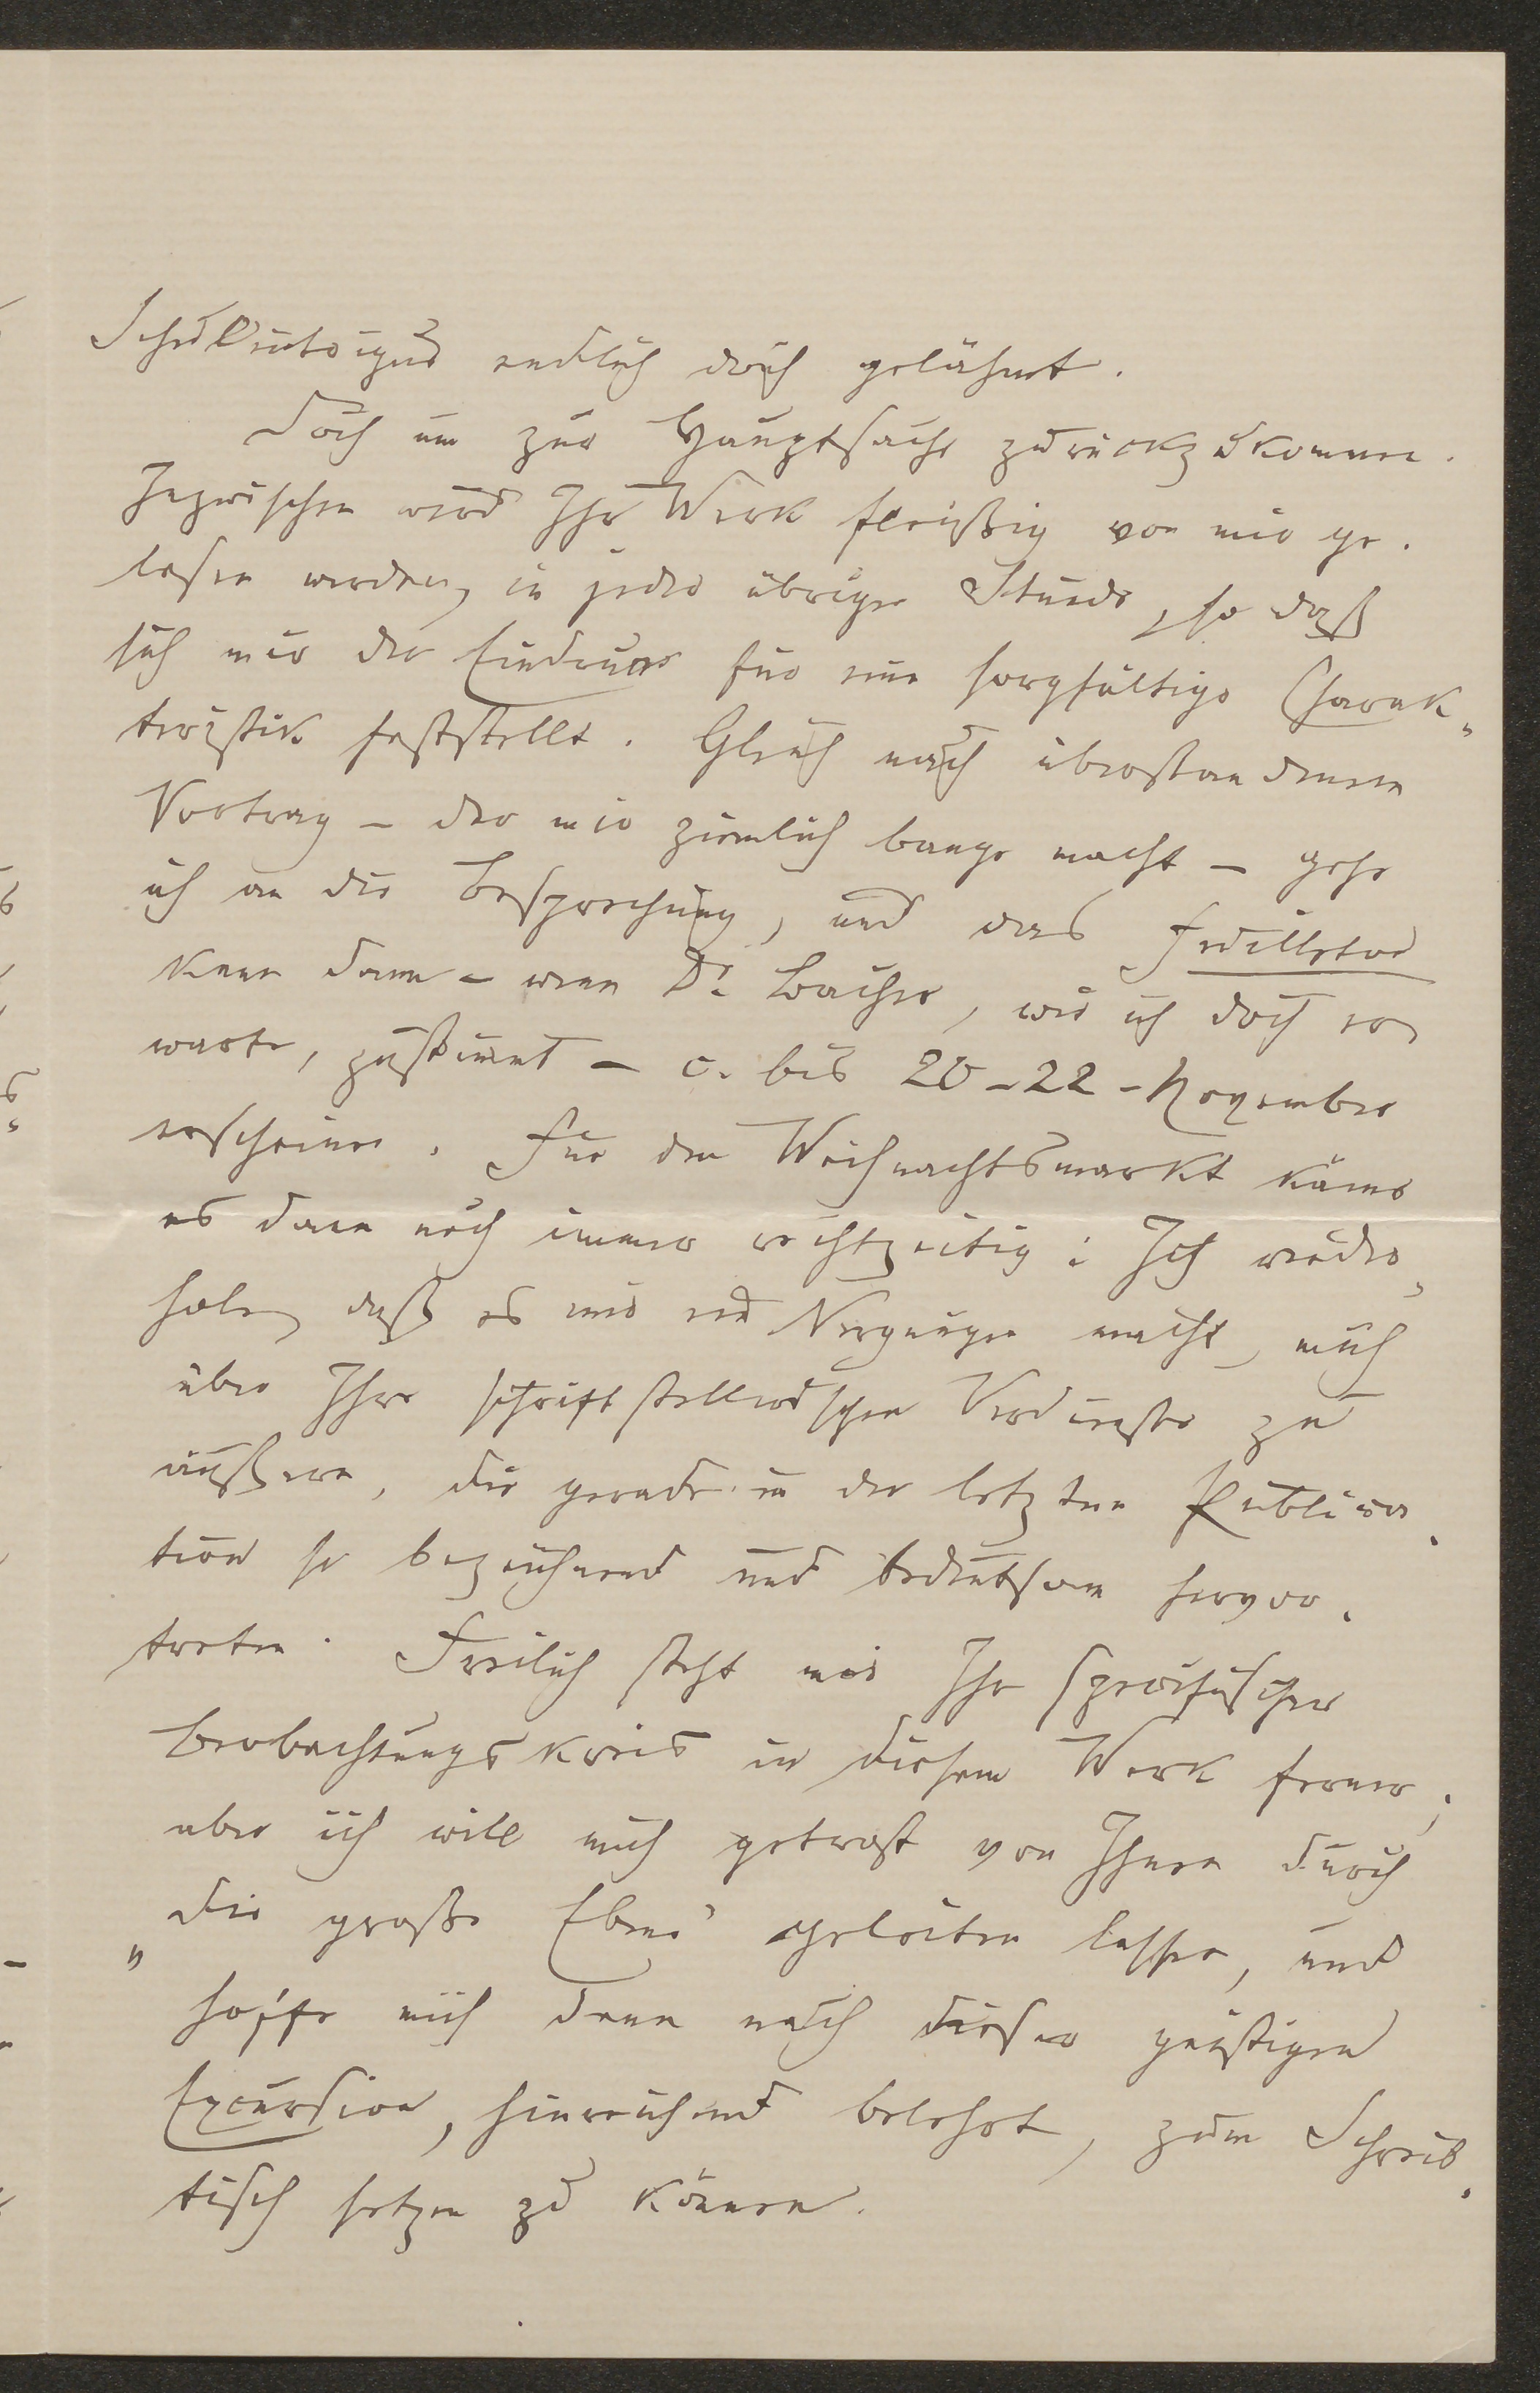 Schulintrigue endlich doch gelähmt.
Doch um zur Hauptsache zurückzukommen.
Inzwischen wird Ihr Werk fleißig von mir ge-
lesen werden, in jeder übrigen Stunde, so daß
sich mir der Eindruck für eine sorgfältige Charak-
teristik feststellt. Gleich nach überstandenem
Vortrag – der mir ziemlich bange macht – gehe
ich an die Besprechung, und das Feuilleton
kann dann – wenn Dr. Bacher, wie ich doch er-
warte, zustimmt – c. bis 20–22 November
erscheinen. Für den Weihnachtsmarkt käme
es dann noch immer rechtzeitig: Ich wieder-
hole, daß es mir ein Vergnügen macht, mich
über Ihre schriftstellerischen Verdienste zu
äußern, die gerade in der letzten Publica-
tion so bezeichnend und bedeutsam hervor-
treten. Freilich steht mir Ihr specifischer
Beobachtungskreis in diesem Werk ferner;
aber ich will mich getrost von Ihnen durch
„die große Ebene“ geleiten lassen, und
hoffe mich dann nach dieser geistigen
Excursion, hinreichend belehrt, zum Schreib-
tisch setzen zu können.